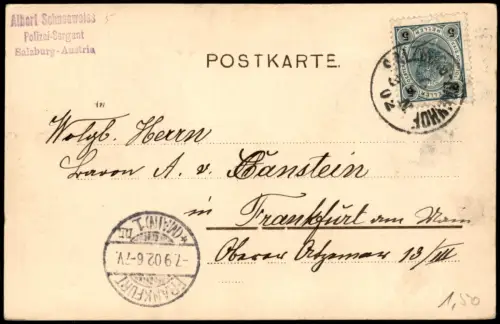 Albert Schneeweiss
Polizei-Sergant
Salzburg-Austria
POSTKARTE.
Wolgb. Herrn
Baron A. v. Canstein
in Frankfurt am Main
Oberer Atzemer 13/III
FRANKFURT
*(MAIN) 1.
7.9.02.6-7V.
1,50